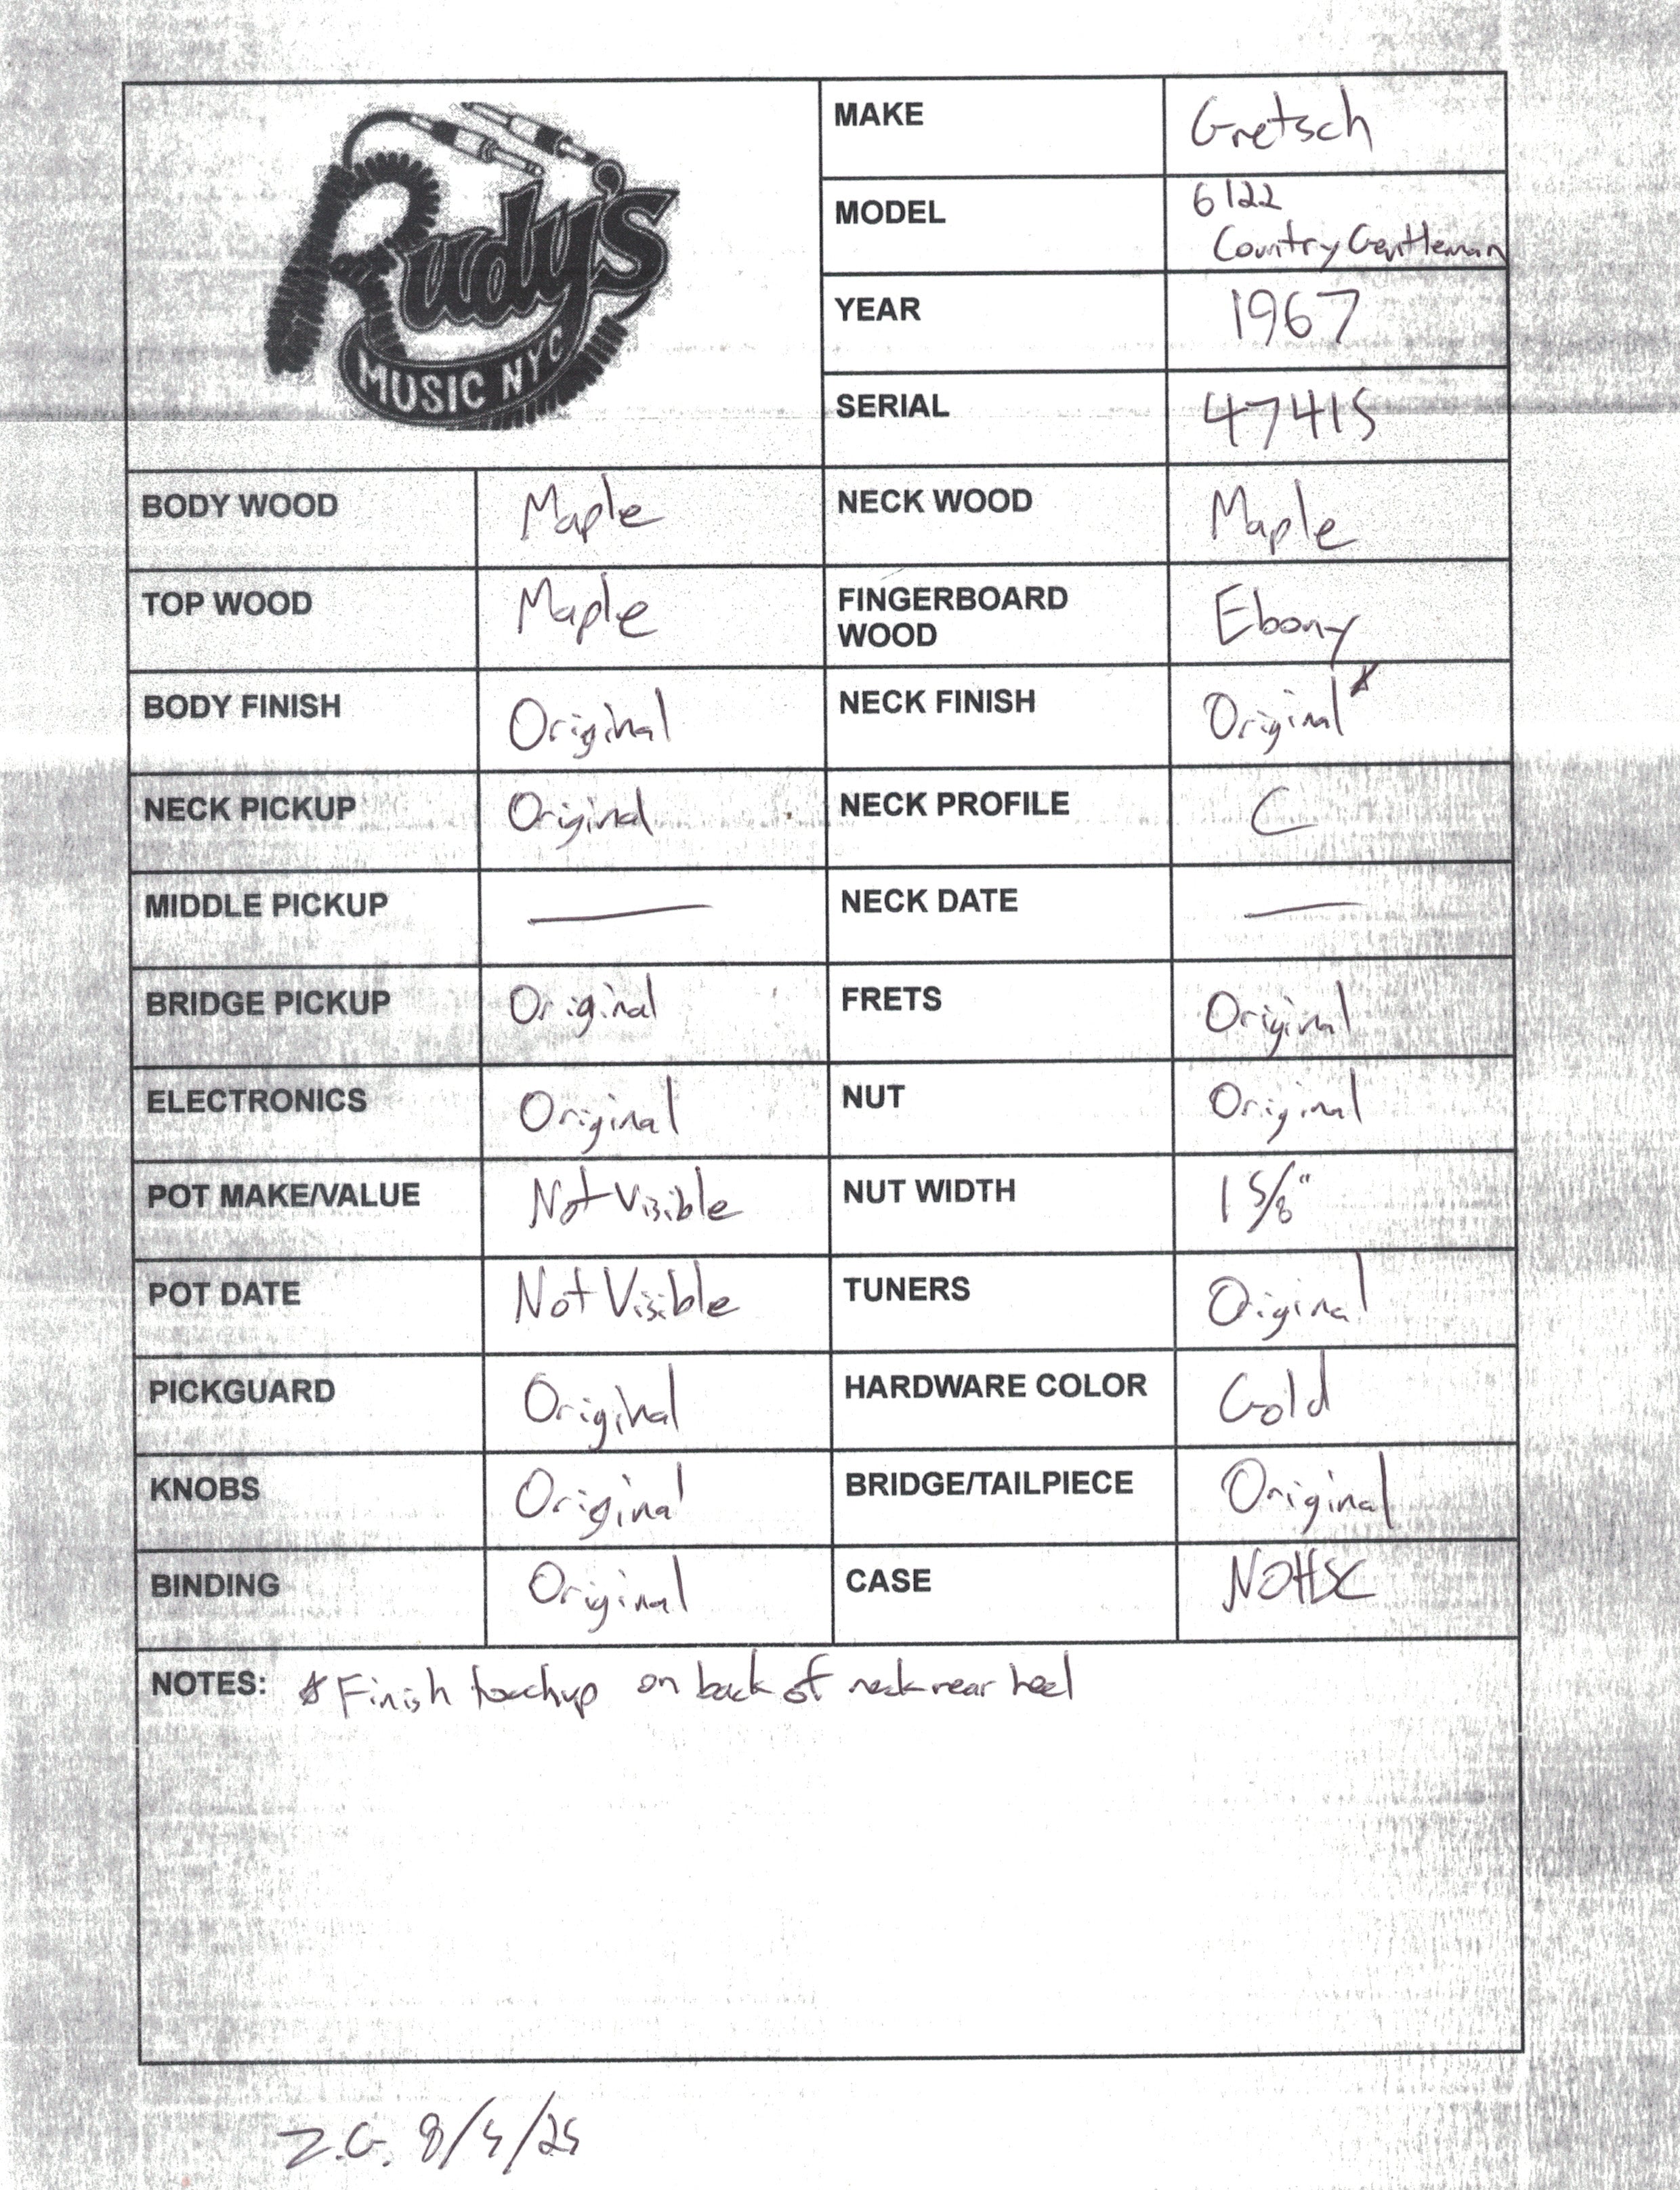 Rudy's
MUSIC NYC
MAKE Gretsch
MODEL 6122
Country Gentleman
YEAR 1967
SERIAL 47415
BODY WOOD Maple NECK WOOD Maple
TOP WOOD Maple FINGERBOARD
WOOD Ebony
BODY FINISH Original NECK FINISH Original*
NECK PICKUP Original NECK PROFILE C
MIDDLE PICKUP — NECK DATE —
BRIDGE PICKUP Original FRETS Original
ELECTRONICS Original NUT Original
POT MAKE/VALUE Not Visible NUT WIDTH 1 5/8"
POT DATE Not Visible TUNERS Original
PICKGUARD Original HARDWARE COLOR Gold
KNOBS Original BRIDGE/TAILPIECE Original
BINDING Original CASE NOHSC
NOTES: *Finish touchup on back of neck near heel
Z.G. 8/5/25